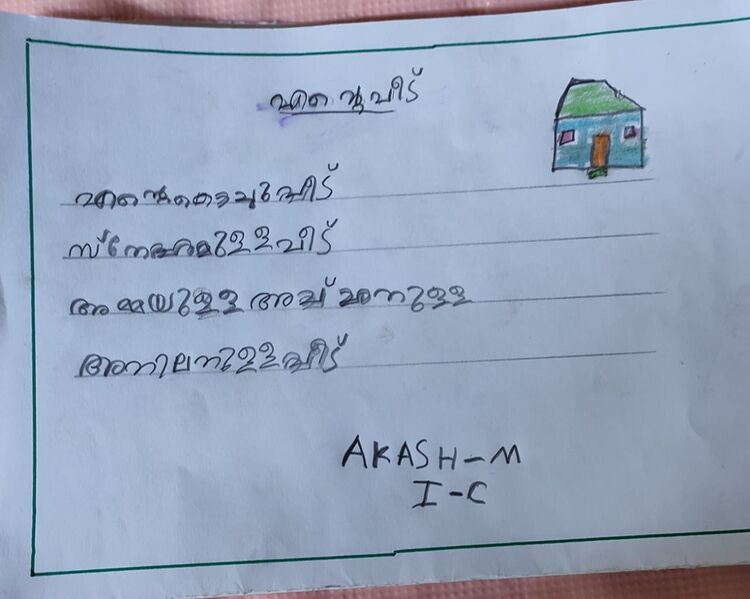 എന്റെ വീട്
എന്റെ കൊച്ചു വീട്
സ്നേഹമുള്ള വീട്
അമ്മയുള്ള അച്ഛനുള്ള
അനിലനുള്ള വീട്
AKASH-M
I-C